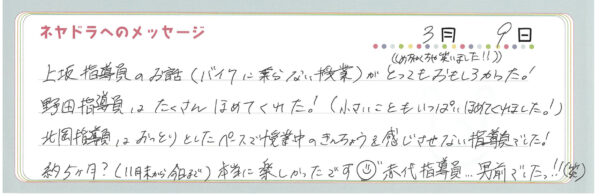 ネヤドラへのメッセージ
3月 9日
((めちゃくちゃ笑いました!!))
上坂指導員のお話(バイクに乗らない授業)がとってもおもしろかった。!
野田指導員はたくさんほめてくれた。!(小さいこともいっぱいほめてくれました。!)
北岡指導員はおっとりとしたペースで授業中のきんちょうを感じさせない指導員でした!
約5ヶ月?(11月末から今日まで)本当に楽しかったです 赤代指導員…男前でしたっ!!(笑)